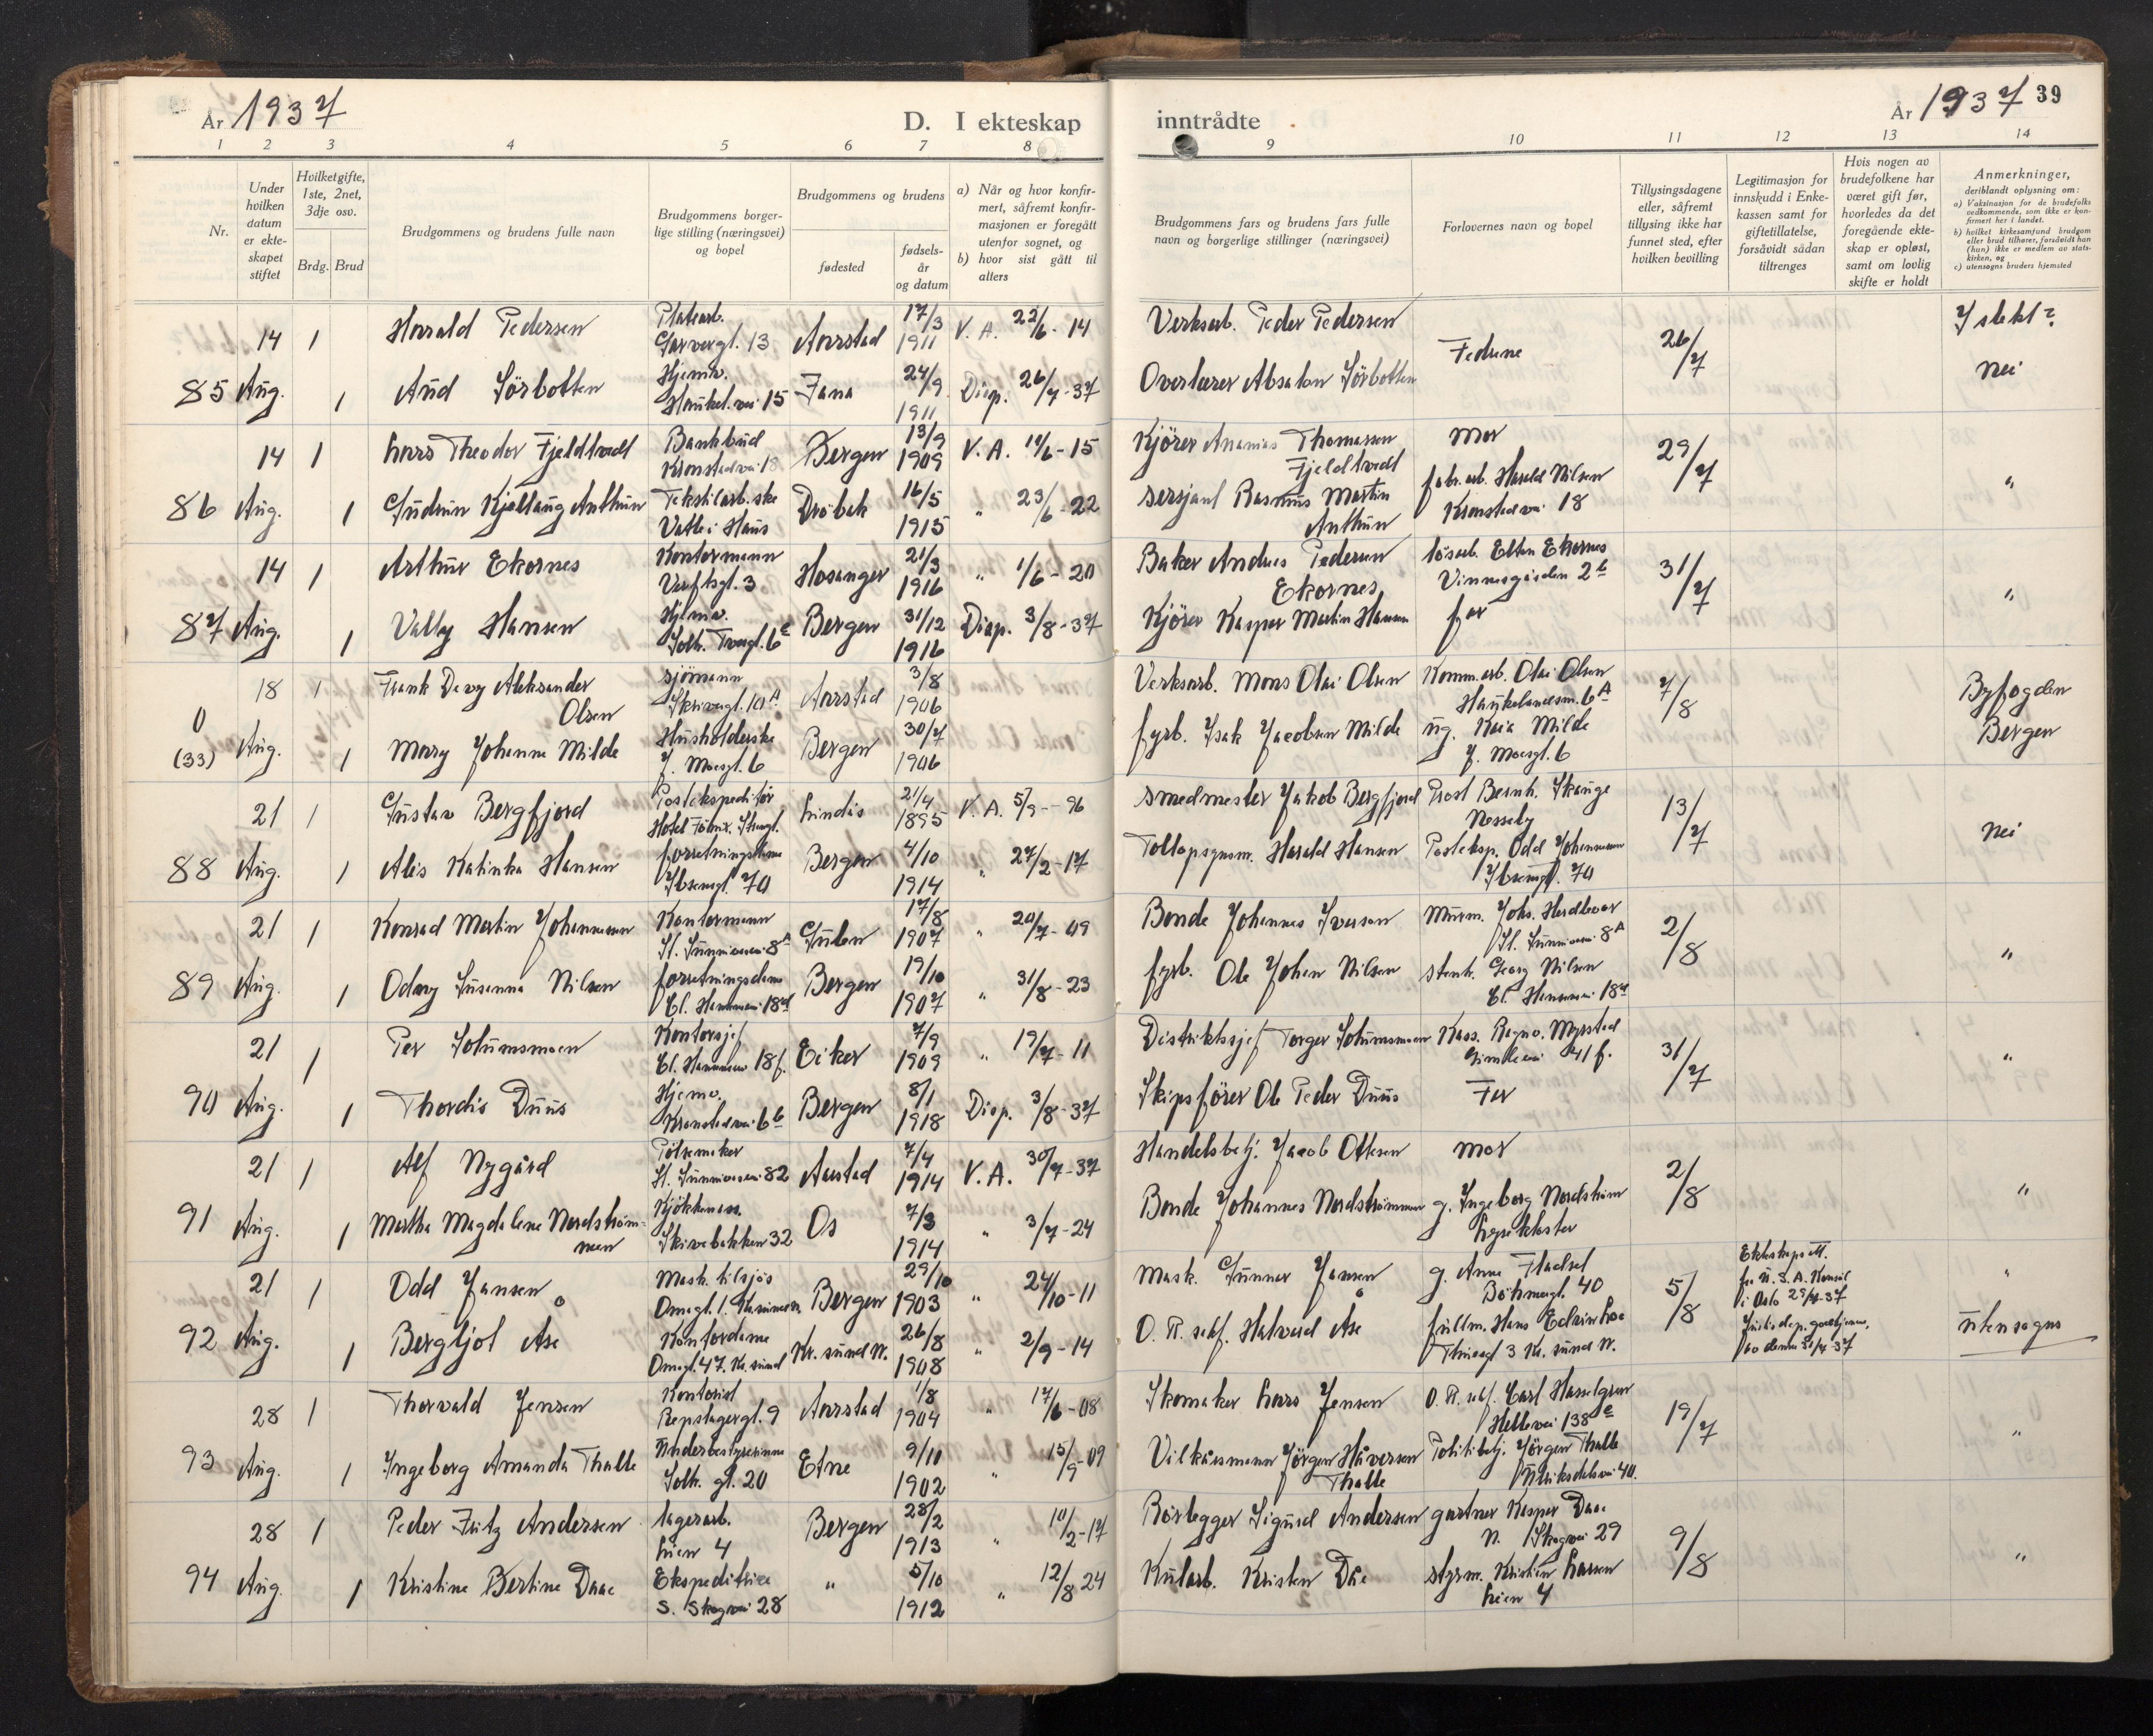 År 1937
D. I ekteskap
inntrådte
År 1937 39
1 2 3 4 5 6 7 8 9 10 11 12 13 14
Nr.
Under hvilken datum er ekteskapet stiftet
Hvilketgifte, 1ste, 2net, 3dje osv.
Brdg. Brud
Brudgommens og brudens fulle navn
Brudgommens borgerlige stilling (næringsvei) og bopel
Brudgommens og brudens
fødested
fødselsår og datum
a) Når og hvor konfirmert, såfremt konfirmasjonen er foregått utenfor sognet, og
b) hvor sist gått til alters
Brudgommens fars og brudens fars fulle navn og borgerlige stillinger (næringsvei)
Forlovernes navn og bopel
Tillysingsdagene eller, såfremt tillysing ikke har funnet sted, efter hvilken bevilling
Legitimasjon for innskudd i Enkekassen samt for giftetillatelse, forsåvidt sådan tiltrenges
Hvis nogen av brudefolkene har været gift før, hvorledes da det foregående ekteskap er opløst, samt om lovlig skifte er holdt
Anmerkninger,
deriblandt oplysning om:
a) Vaksinasjon for de brudefolks vedkommende, som ikke er konfirmert her i landet.
b) hvilket kirkesamfund brudgom eller brud tilhører, forsåvidt han (hun) ikke er medlem av statskirken, og
c) utensogns bruders hjemsted
14 1 Harald Pedersen Platearb. Garvergt. 13 Aarstad 17/3 1911 V. A. 22/6 - 14 Verksarb. Peder Pedersen Fedrene 26/7 I slekt?
85 Aug. 1 Aud Sörbotten Hjemv. Haukel.vei 15 Fana 24/9 1911 Disp. 26/7 - 37 Overlærer Absalon Sörbotten nei
14 1 Lars Theodor Fjeldtvedt Bankbud Kronstadvei 18 Bergen 13/9 1909 V. A. 11/6 - 15 Kjörer Ananias Thomassen Fjeldtvedt Mor 29/7
86 Aug. 1 Gudrun Kjellaug Anthun Tekstilarb.ske Vatle i Haus Dröbak 16/5 1915 " 23/6 - 22 sersjant Rasmus Martin Anthun fabr.arb. Harald Nilsen Kronstadvei 18 "
14 1 Arthur Ekornes Kontormann Verftsgt. 3 Hosanger 21/3 1916 " 1/6 - 20 Baker Andreas Pedersen Ekornes lösarb. Elten Ekornes Vinnesgården 2b 31/7
87 Aug. 1 Vally Hansen Hjemv. Solh. Tverrgt. 6c Bergen 31/12 1916 Disp. 3/8 - 37 Kjörer Kasper Martin Hansen far "
18 1 Frank Davy Aleksander Olsen sjömann Skrivergt. 10A Aarstad 3/8 1906 Verksarb. Mons Olai Olsen Komm.arb. Olai Olsen Haukelandsm. 6A 7/8 Byfogden
0 (33) Aug. 1 Mary Johanne Milde Husholderske J. Moesgt. 6 Bergen 30/7 1906 fyrb. Isak Jacobsen Milde ug. Kaia Milde J. Moesgt. 6 Bergen
21 1 Gustav Bergfjord Postekspeditör Lindås 21/4 1895 V. A. 5/9 - 96 smedmester Jakob Bergfjord Prost Bernh. Skauge Nesseby 13/7
88 Aug. 1 Alis Katinka Hansen forretningsdame Ibsensgt. 70 Bergen 4/10 1914 " 27/2 - 17 Tollopsynsm. Harald Hansen Posteksp. Odd Johannesen Ibsensgt. 70 nei
21 1 Konrad Martin Johannesen Kontormann St. Sunnivasvei 8A Gulen 17/8 1907 " 20/7 - 09 Bonde Johannes Iversen Murm. Johs. Herdlevær St. Sunnivasvei 8A 2/8
89 Aug. 1 Odny Susanna Nilsen forretningsdame Bergen 19/10 1907 " 31/8 - 23 fyrb. Ole Johan Nilsen stenh. Georg Nilsen "
21 1 Per Solumsmoen Kontorsjef Eiker 7/9 1909 " 19/7 - 11 Distriktssjef Torger Solumsmoen Kass. Ragnv. Myrstad Gimleveien 41f. 31/7
90 Aug. 1 Thordis Duus Hjemv. Kronstadvei 6b Bergen 8/1 1918 Disp. 3/8 - 37 Skipsförer Ole Peder Duus Far "
21 1 Alf Nygård Pölsemaker St. Sunnivasvei 82 Aarstad 7/4 1914 V. A. 30/7 - 37 Handelsbetj. Jacob Ottesen mor 2/8
91 Aug. 1 Martha Magdalene Nordströmmen Kjökkenass. Skivebakken 32 Os 7/3 1914 " 3/7 - 24 Bonde Johannes Nordströmmen g. Ingeborg Nordström Lyseklostер "
21 1 Odd Jansen Mask. tilsjös Omagt. 1. Kr.sund N. Bergen 29/10 1903 " 24/10 - 11 Mask. Gunnar Jansen g. Anna Fladset Böhmergt. 40 5/8 Ekteskapsatt. fra U.S.A. Konsul i Oslo 29/7-37 "
92 Aug. 1 Bergljot Åse Kontordame Omagt. 47. Kr. sund Kr. sund N. 26/8 1908 " 2/9 - 14 O. R. sakf. Halvard Åse fullm. Hans Edvin Loe Thuesgt 3 Kr. sund N. Justisdep. godkjenn. utensogns
28 1 Thorvald Jensen Kontorist Repslagergt. 9 Aarstad 1/8 1904 " 17/6 - 08 Skomaker Lars Jensen O. R. sakf. Carl Hasselgren Hellevei 138e 19/7
93 Aug. 1 Ingeborg Amanda Thalle Underbestyrerinne Solh. gt. 20 Etne 9/11 1902 " 15/9 - 09 Vilkårsmann Jörgen Håversen Thalle Politibetj. Jörgen Thalle Ulriksdalsvei 40. "
28 1 Peder Fritz Andersen lagerarb. Lien 4 Bergen 28/2 1913 " 10/2 - 17 Rörlegger Sigurd Andersen gartner Kasper Daae N. Skogvei 29 9/8
94 Aug. 1 Kristine Bertine Daae Ekspeditrice S. Skogvei 28 " 5/10 1912 " 12/8 24 Kularb. Kristen Dåe styrm. Kristian Larsen Lien 4 "